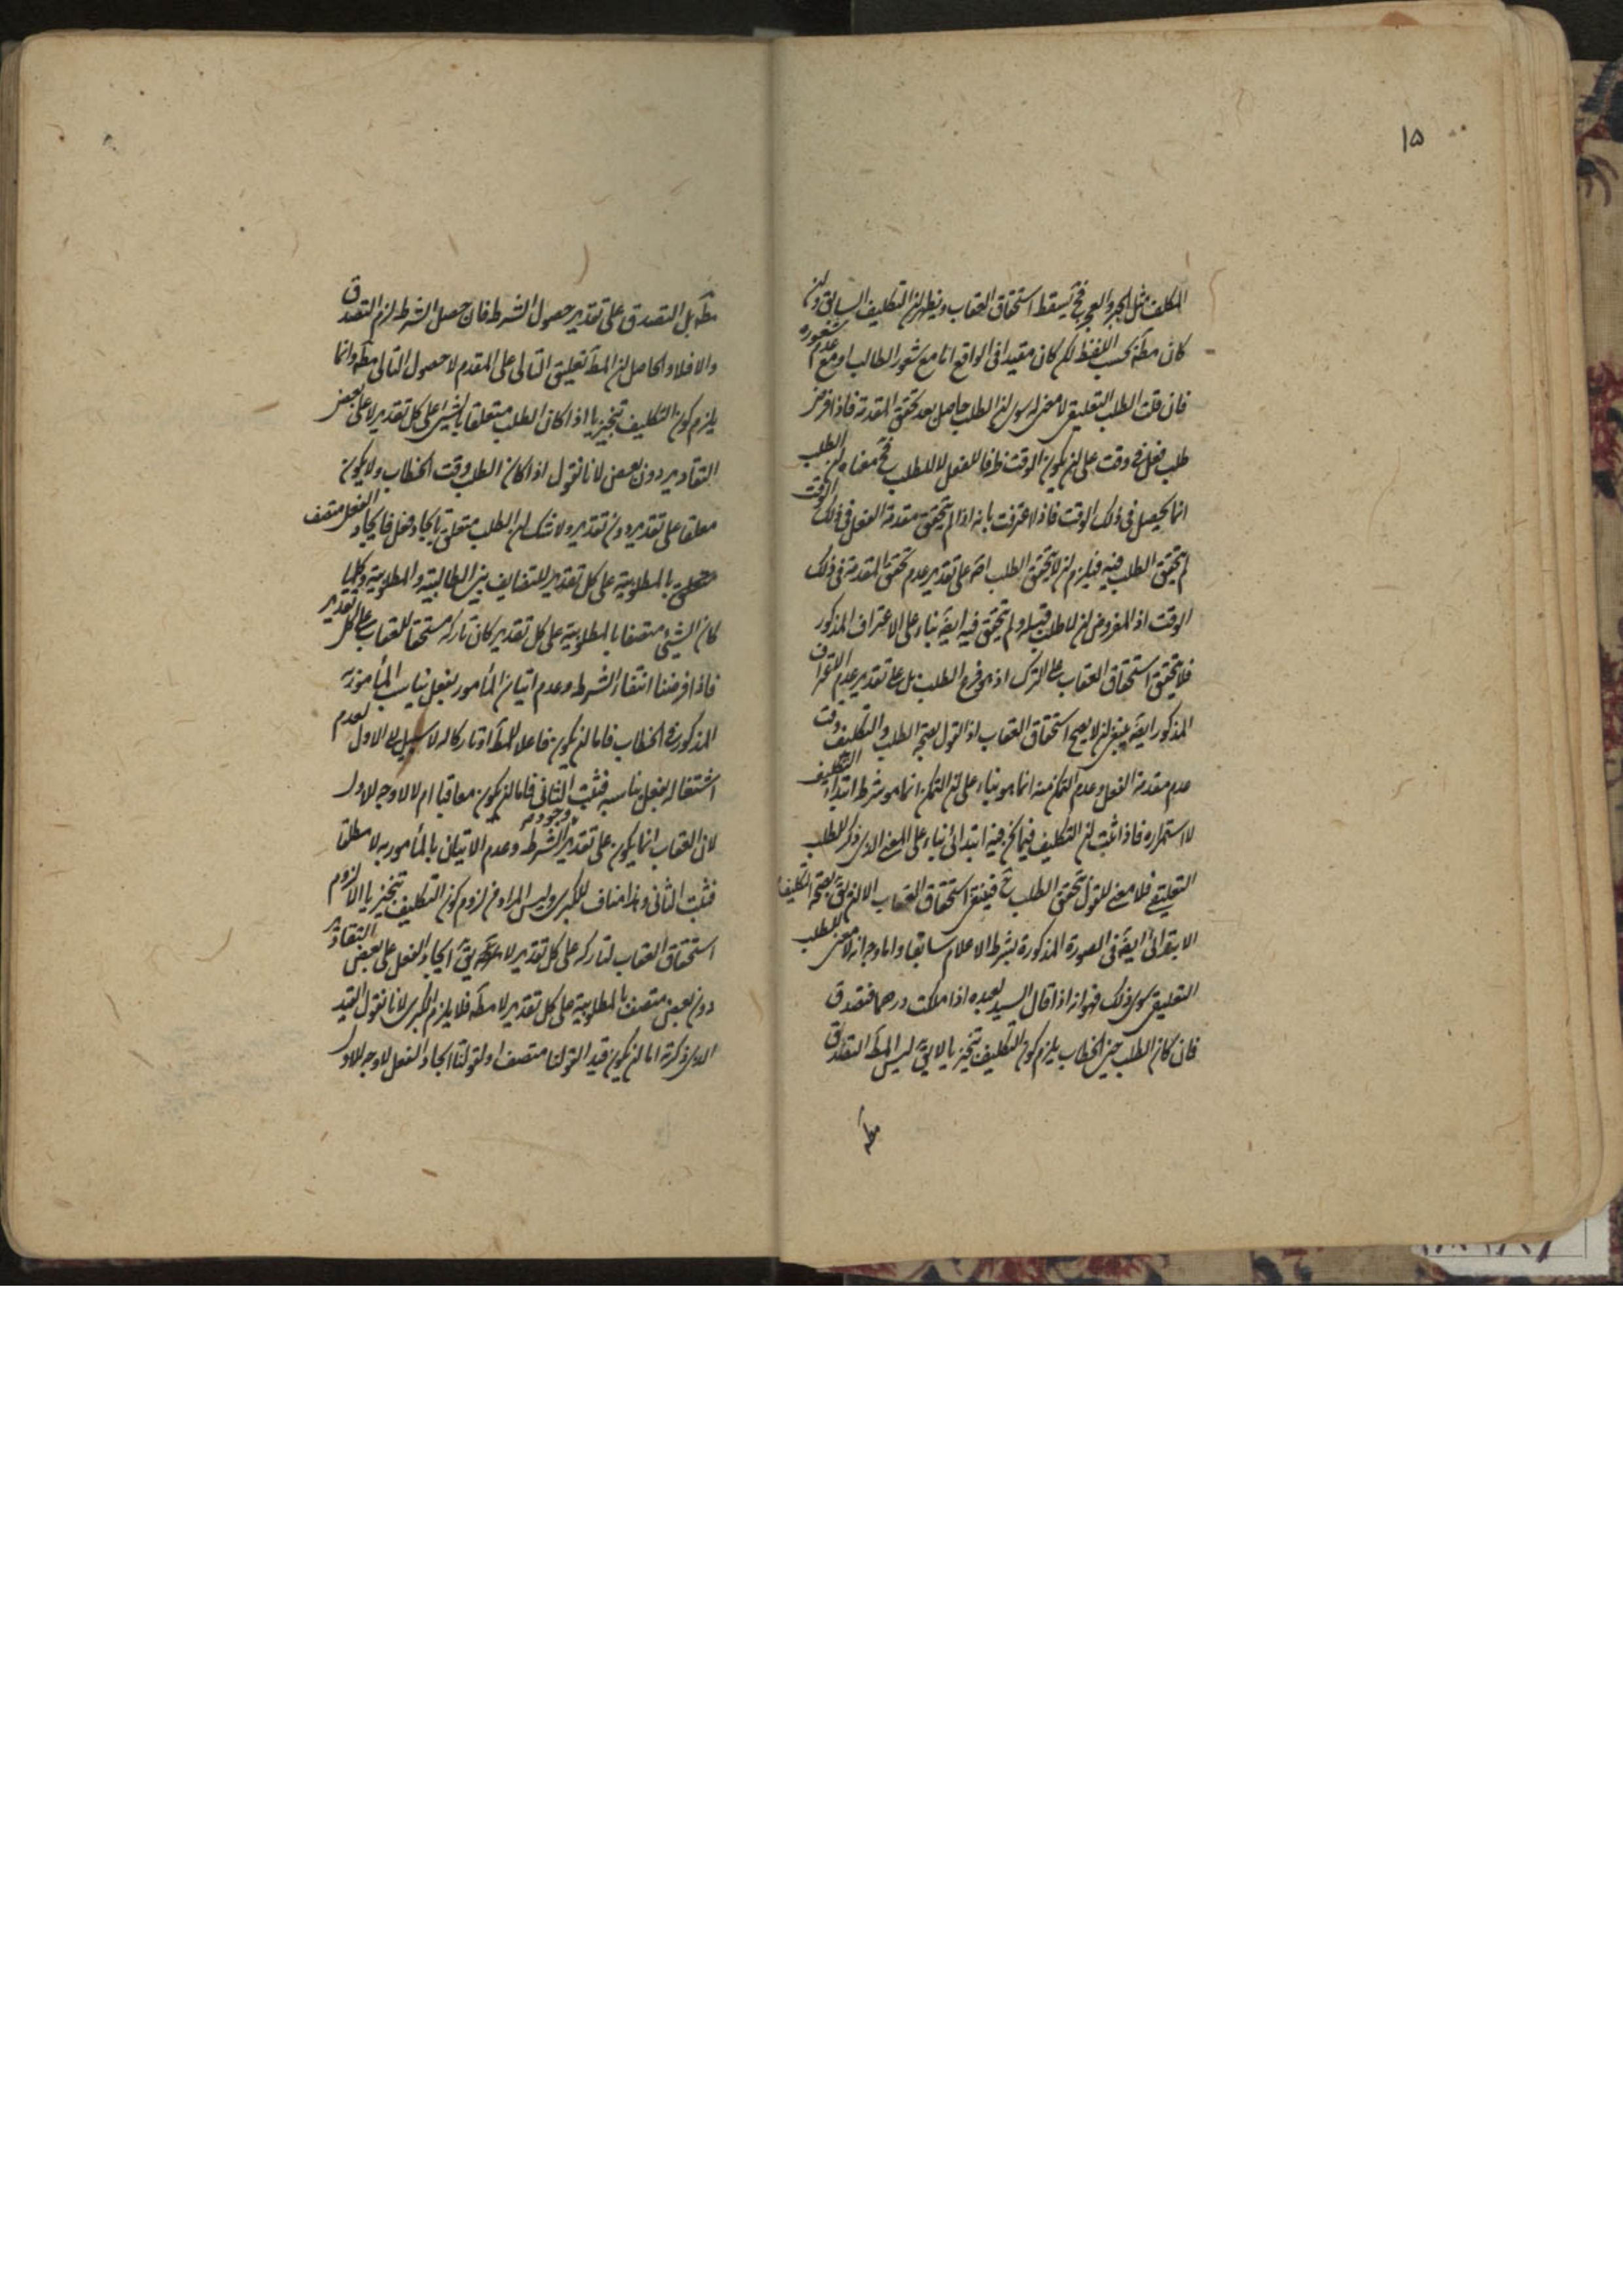 ١٥
المكلف مثل الجبر والعجز فح يسقط استحقاق العقاب ويظهر ان التكليف السابق وان
كان مطلقا بحسب اللفظ لكن كان مقيدا فى الواقع اما مع شعور الطالب او مع عدم شعوره
فان قلت الطلب التعليقى لا معنى له سوى ان الطلب حاصل بعد تحقق المقدمة فاذا فرض
طلب فعل فى وقت على ان يكون الوقت ظرفا للفعل لا للطلب فح معناه ان الطلب
انما يحصل فى ذلك الوقت فاذا اعترفت بانه اذا لم يتحقق مقدمة الفعل فى ذلك الوقت
لم يتحقق الطلب فيه فيلزم ان لا يتحقق الطلب اصلا على تقدير عدم تحقق المقدمة فى ذلك
الوقت اذ المفروض ان لا طلب قبله ولم يتحقق فيه ايضا بناء على الاعتراف المذكور
فلا يتحقق استحقاق العقاب على الترك اذ هو فرع الطلب بل على تقدير عدم الاعتراف
المذكور ايضا ينبغى ان لا يصح استحقاق العقاب اذ القول بصحة الطلب والتكليف وقت
عدم مقدمة الفعل وعدم التمكن منه انما هو بناء على ان التمكن انما هو شرط ابتداء التكليف
لا استمراره فاذا ثبت ان التكليف فيما نحن فيه ابتدائى بناء على المعنى الذى ذكر للطلب
التعليقى فلا معنى للقول بتحقق الطلب ح فينتفى استحقاق العقاب الا ان يق بصحة التكليف
الابتدائى ايضا فى الصورة المذكورة بشرط الاعلام سابقا واما وجه انه لا معنى للطلب
التعليقى سوى ذلك فهو انه اذا قال السيد لعبده اذا ملكت درهما فتصدق
فان كان الطلب حين الخطاب يلزم كون التكليف تنجيزيا لا يق ليس المط التصدق
مط
مط بل التصدق على تقدير حصول الشرط فان حصل الشرط لزم التصدق
والا فلا والحاصل ان المط تعليق التالى على المقدم لا حصول التالى مط وانما
يلزم كون التكليف تنجيزيا اذا كان الطلب متعلقا بالشىء على كل تقدير لا على بعض
التقادير دون بعض لانا نقول اذا كان الطلب وقت الخطاب ولا يكون
معلقا على تقدير دون تقدير ولا شك ان الطلب متعلق بايجاد فعل فايجاد الفعل متصف
بالمطلوبية على كل تقدير للتضايف بين الطالبية والمطلوبية وكلما
كان الشىء متصفا بالمطلوبية على كل تقدير كان تاركه مستحقا للعقاب على كل تقدير
فاذا فرضنا انتفاء الشرط وعدم اتيان المأمور بفعل يناسب المأمور به
المذكور فى الخطاب فاما ان يكون فاعلا للمط او تاركا له لا سبيل الى الاول لعدم
اشتغاله بفعل يناسبه فثبت الثانى فاما ان يكون معاقبا ام لا لا وجه للاول
لان العقاب انما يكون على تقدير وجود الشرط وعدم الاتيان بالمأمور به لا مطلقا
فثبت الثانى وهذا مناف للكبرى وليس المراد من لزوم كون التكليف تنجيزيا الا لزوم
استحقاق العقاب لتاركه على كل تقدير لا يق ايجاد الفعل على بعض التقادير
دون بعض متصف بالمطلوبية على كل تقدير لا مط فلا يلزم الكبرى لانا نقول القيد
الذى ذكرته اما ان يكون قيدا لقولنا متصف او لقولنا ايجاد الفعل لا وجه للاول